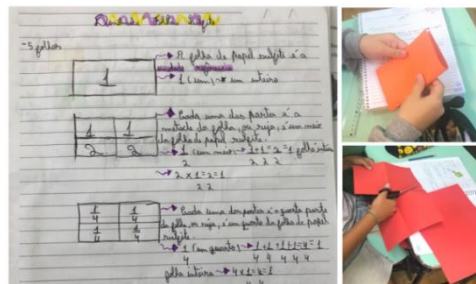 -5 folhas
1
→ A folha de papel sulfite é a
unidade referência
→ 1 (um) → um inteiro
1 1
2 2
→ Cada uma das partes é a
metade da folha, ou seja, é um meio
da folha de papel sulfite.
→ 1 (um meio) → 1 + 1 = 2 = 1 folha
2 2 2 2
→ 2 x 1 = 2 = 1
2 2
1 1
4 4
1 1
4 4
→ Cada uma das partes é a quarta parte
da folha, ou seja, é um quarto da folha de papel
sulfite.
→ 1 (um quarto) → 1 + 1 + 1 + 1 = 4 = 1
4 4 4 4 4 4
folha inteira → 4 x 1 = 4 = 1
4 4